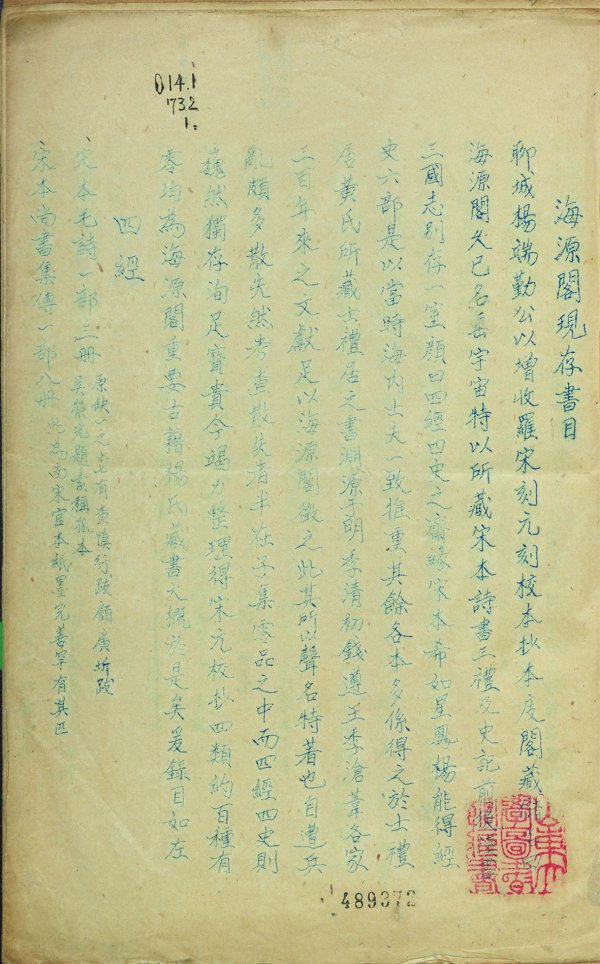 014.1
732
1:
海源閣現存書目
聊城楊端勤公以增收羅宋刻元刻校本抄本度閣藏
海源閣久已名垂宇宙特以所藏宋本詩書三禮及史記前後漢書
三國志別存一室顏曰四經四史之齋緣宋本希如星鳳楊能得經
史六部是以當時海內士大一致推重其餘各本多係得之於士禮
居黃氏所藏士禮居之書淵源于明季清初錢遵王季滄葦各家
三百年來之文獻足以海源閣徵之此其所以聲名特著也自遭兵
亂頗多散失然考查散失者半在子集零品之中而四經四史則
巍然獨存洵足寶貴今竭力整理得宋元校抄四類約百種有
零均為海源閣重要古籍楊氏藏書大概於是矣爰錄目如左
四經
宋本毛詩一部三冊
原缺一之七有查慎行跋顧廣圻跋
吳榮光題款稱孤本
宋本尚書集傳一部八冊 此為南宋官本紙墨完善罕有其匹
山東大
學圖書
館藏書
489372